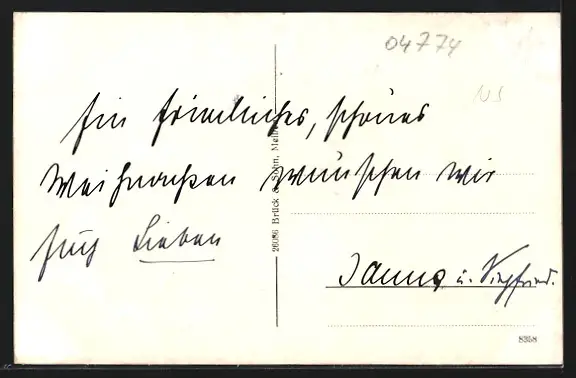 04774
NS
Ein friedliches, schönes
Weihnachten wünschen wir
Euch Lieben
Hanna u. Siegfried.
26086 Brück & Sohn, Meißen
8358